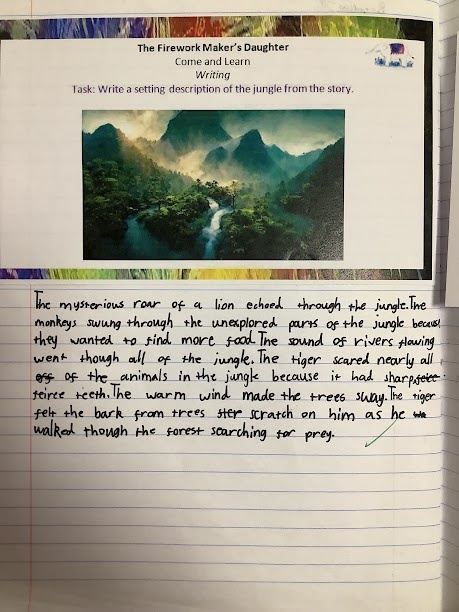 The Firework Maker's Daughter
Come and Learn
Writing
Task: Write a setting description of the jungle from the story.
The mysterious roar of a lion echoed through the jungle. The
monkeys swung through the unexplored parts of the jungle because
they wanted to find more food. The sound of rivers flowing
went though all of the jungle. The tiger scared nearly all
of the animals in the jungle because it had sharp
feirce teeth. The warm wind made the trees sway. The tiger
felt the bark from trees scratch on him as he
walked though the forest searching for prey.